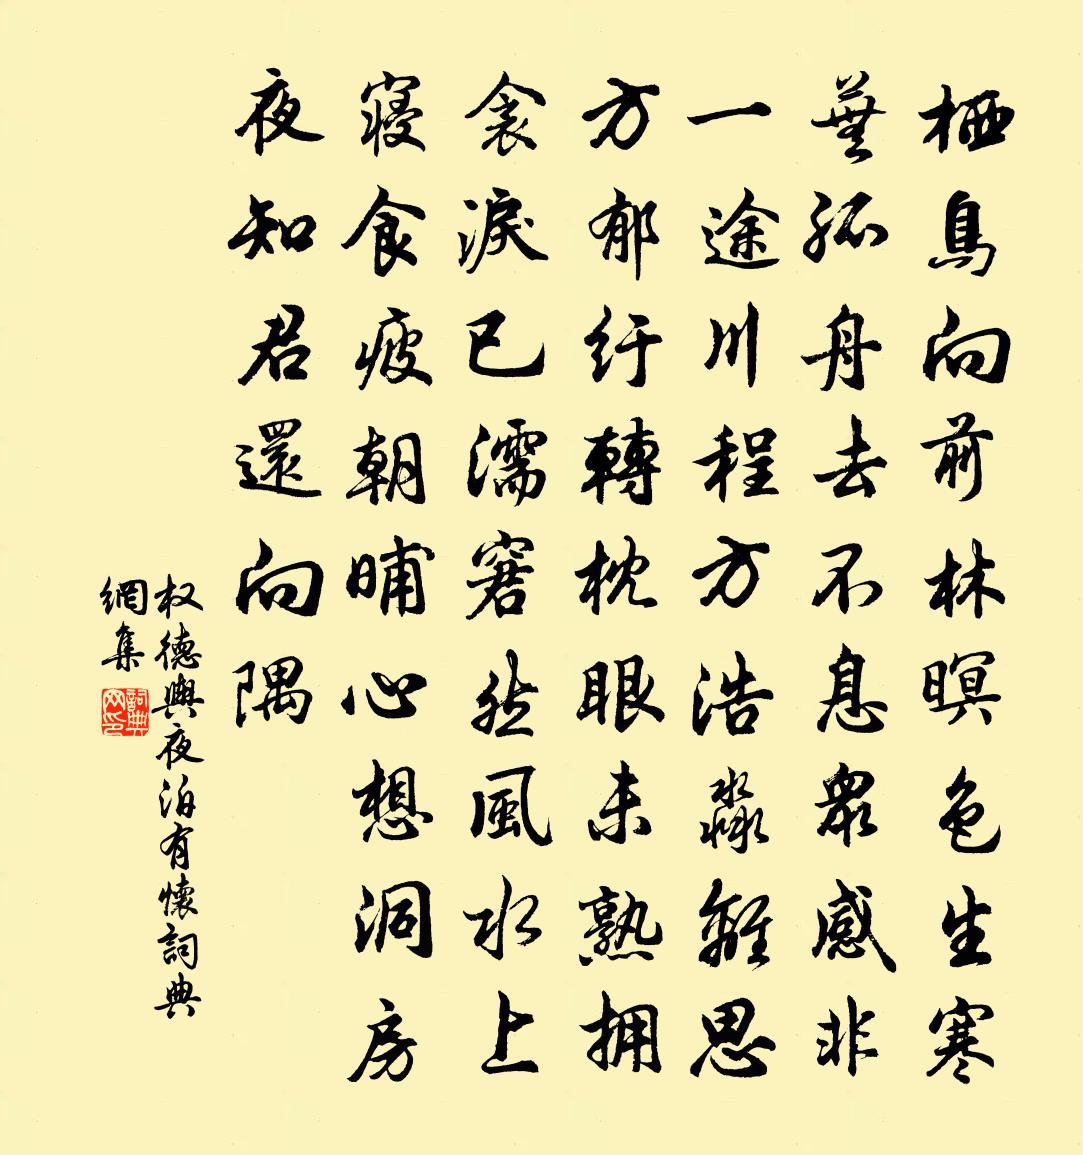 栖鳥向前林暝色生寒
蕪孤舟去不息衆感非
一途川程方浩淼離思
方郁紆轉枕眼未熟拥
衾淚已濡窘然風水上
寝食疲朝晡心想洞房
夜知君還向隅
权德輿夜泊有懷詞典
網集
詞典
网印